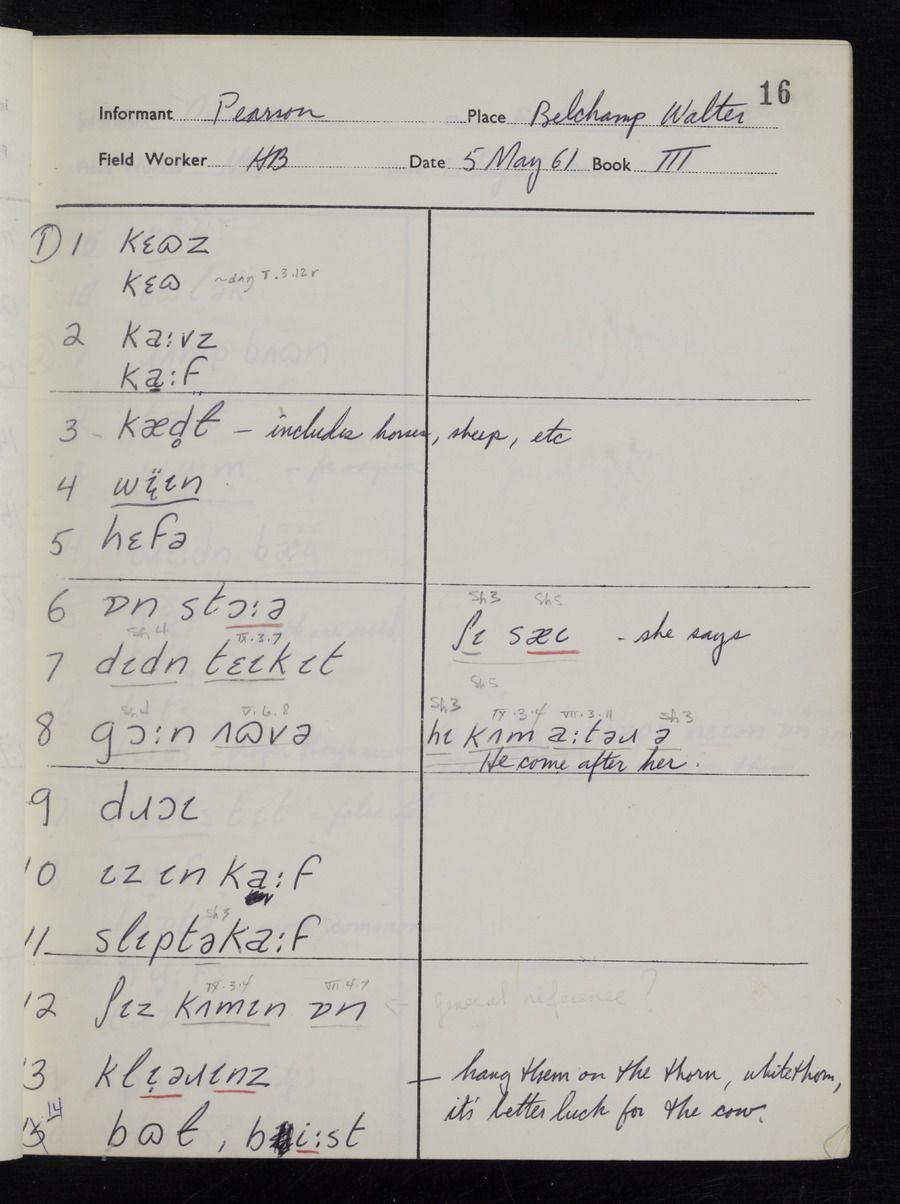 16
Informant Pearson Place Belchamp Walter
Field Worker HB Date 5 May 61 Book III
① 1 kɛɷz
kɛɷ ~dnŋ V.3.12r
2 ka:vz
ka̠:f
3 - kæd̥ɫ – includes horses, sheep, etc
4 wï̞ɩn
5 hɛfə
6 ɒn stɔ:ə
Sh3 Sh5
ʃɩ sæɩ - she says
Sh4 IX.3.7
7 dɩdn tɛɩkɩt
Sh5
Sh4 V.6.8
8 gɔ:n ʌɷvə
Sh3 IX.3.4 VII.3.11 Sh3
hɩ kʌm a:təɹ ə
He come after her.
9 dɹɔɩ
10 ɩz ɩn ka̠:f
Sh3
11 slɩptəka:f
IX.3.4 VII 4.7
12 ʃɩz kʌmɩn ɒn <– general reference?
13 klɩ̣əɹɩnz – hang them on the thorn, whitethorn,
it's better luck for the cow.
14 bɷɫ , bi:st